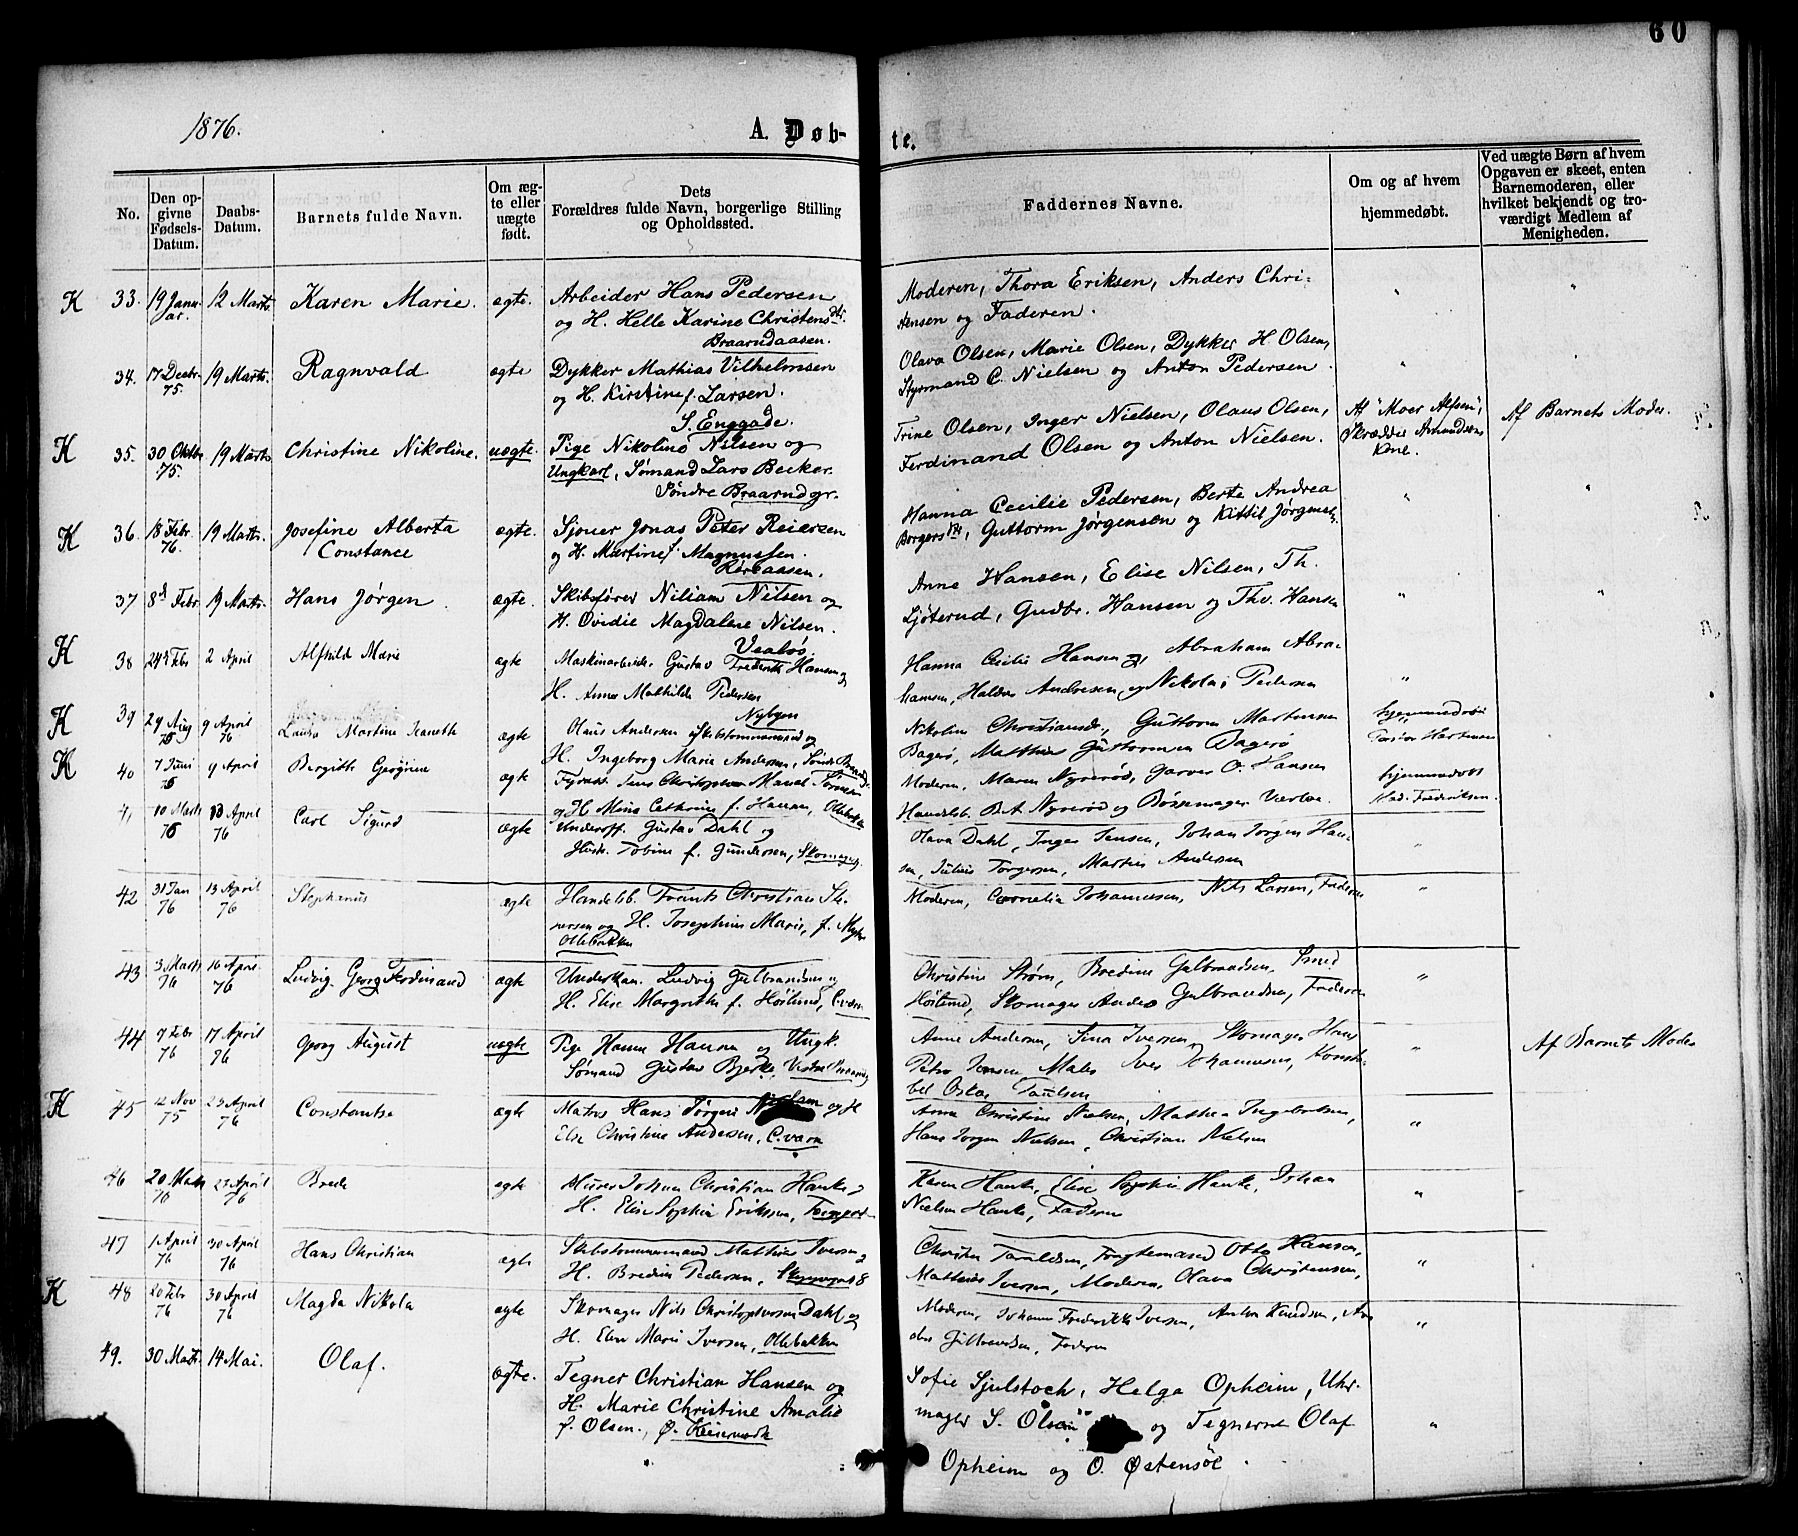 60
1876.
A. Døb-
te.
No.
Den op-
givne
Fødsels-
Datum.
Daabs-
Datum.
Barnets fulde Navn.
Om æg-
te eller
uægte
født.
Dets
Forældres fulde Navn, borgerlige Stilling
og Opholdssted.
Faddernes Navne.
Om og af hvem
hjemmedøbt.
Ved uægte Børn af hvem
Opgaven er skeet, enten
Barnemoderen, eller
hvilket bekjendt og tro-
værdigt Medlem af
Menigheden.
K 33. 19 Janu- 12 Marts. Karen Marie. ægte. Arbeider Hans Pedersen Moderen, Thora Eriksen, Anders Chri-
ar. og H. Helle Karine Christensdtr. stensen og Faderen.
Braarudaasen.
34. 17 Decbr. 19 Marts. Ragnvald ægte Dykker Mathias Vilhelmsen Olava Olsen, Marie Olsen, Dykker H. Olsen,
75. og H. Kirstine f. Larsen. Styrmand C. Nielsen og Anton Pedersen.
S. Enggade.
K 35. 30 Oktbr. 19 Marts Christine Nikoline. uægte. Pige Nikoline Nilsen og Trine Olsen, Inger Nielsen, Olaus Olsen, Af "Moer Alfsen", Af Barnets Moder.
75. Ungkarl, Sømand Lars Becker. Ferdinand Olsen og Anton Nielsen. Skrædder Amundsens
Søndre Braarudgr. Kone.
K 36. 18 Febr. 19 Marts. Josefine Alberta ægte. Sjouer Jonas Peter Reiersen Hanna Cecilie Pedersen, Berte Andrea
76. Constance og H. Martine f. Magnussen. Borgersdtr, Guttorm Jørgensen og Kittil Jørgensen.
37 8de Febr. 19 Marts. Hans Jørgen. ægte. Skibsfører Niliam Nilsen og Anne Hansen, Elise Nilsen, Th.
H. Ovidie Magdalene Nilsen. Ljøterud, Gudbr. Hansen og Thv. Hansen
Vealøs.
K 38 24de Feb 2 April Alfhild Marie ægte Maskinarbeider Gustav Frederik Hansen og Hanna Cecilie Hansen, Abraham Abra-
H. Anne Mathilde Pedersen hamsen, Halder Andresen, og Nikolai Pedersen
Nybyen
K 39 29 Aug 9 April Laura Martine Jeanette ægte Olaus Andersen Skibstømmermand og Nikoline Christiansd., Guttorm Martinsen hjemmedøbt
75 76 H. Ingeborg Marie Andersen, Søndre Braarud. Bagerø, Mathias Guttormsen Bagerø
K 40 7 Juni 9 April Bergithe Georgine ægte Moderen, Maren Nyrerød, Garver O. Hansen hjemmedøbt
75 og H. Mine Cathrine f. Hansen, Ollebakken Handelsb. B.A. Nyrerød og Mad. Frederiksen.
41 10 Marts 13 April Carl Sigurd ægte Underoff. Gustav Dahl og Olava Dahl, Inger Jensen, Johan Jørgen Han-
76 76 Hust. Tobine f. Gundersen, Skomagerg. sen, Julius Torgersen, Martin Andersen
42 31 Jan 13 April Stephanus ægte Handelsb. Frants Christian Moderen, Cornelia Johannesen, Nils Larsen, Faderen
76 76 og H. Josephine Marie, f.
Ollebakken
43 3 Marts 16 April Ludvig Georg Ferdinand ægte Underkan. Ludvig Gulbrandsen og Christine Strøm, Bredine Gulbrandsen, Smed
76 76 H. Elise Margrethe f. Høilund, C.værn Høilund, Skomager Anders Gulbrandsen, Faderen
44 7 Febr 17 April Georg August uægte Pige Hanna Hansen og Ungk. Anne Andersen, Sina Iversen, Skomager Hans Af Barnets Moder
76 76 Sømand Gustav Bjerke, Vestre Braarudg Petter Jensen Maler Iver Johannesen, Konsta-
bel Oskar Paulsen
K 45 12 Nov 23 April Constantse ægte Matros Hans Jørgen Nielsen og H Anne Christine Nielsen, Mathea Ingebretsen,
75 76 Else Christine Andersen, C.værn Hans Jørgen Nielsen, Christian Nielsen
46 20 Marts 23 April Brede ægte Murer Johan Christian Hanke og Karen Hanke, Elise Sophie Hanke, Johan
76 76 H. Elise Sophie Eriksen, Nielsen Hanke, Faderen
47 1 April 30 April Hans Christian ægte Skibstømmermand Mathias Iversen og Christen Taraldsen, Fragtemand Otto Hansen,
76 76 H. Bredine Pedersen, Mathias Iversen, Moderen, Olava Christensen,
K 48 20 Febr 30 April Magda Nikola ægte Skomager Nils Christophersen Dahl, og Moderen, Johanne Frederikke Iversen, Anton Knudsen, An-
76 76 H. Elen Marie Iversen, Ollebakken Faderen
49. 30 Marts. 14 Mai. Olaf. ægte. Tegner Christian Hansen og Sofie Sjulstoch, Helga Opheim, Uhr-
H. Marie Christine Amalie mager S. Olsen og Tegnerne Olaf
f. Olsen., Ø. Keisemark Opheim og O. Østensøe.